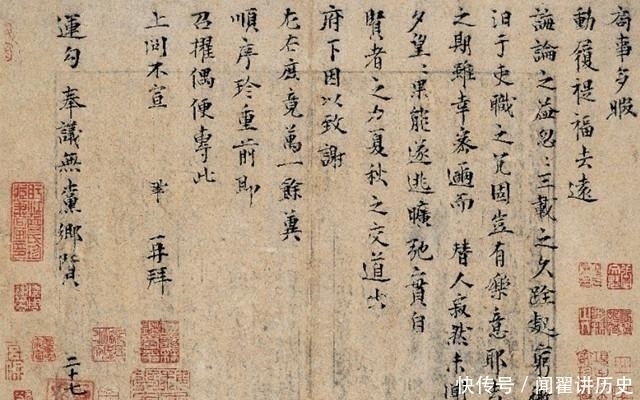 局事多暇
動履禔福去遠
誨論之益忽〻三載之久跧處窮徼
汩于吏職之冗固豈有樂意耶去
之期雖幸密邇而 替人寂然未聞
夕望〻果能遂逃曠弛實自
賢者之力夏秋之交道出
府下因以致謝
左右庶竟萬一餘冀
順序珍重前即
召擢偶便專此
上問不宣 鞏 再拜
運勾奉議無黨鄉賢 二十七
快传号 / 闻翟讲历史